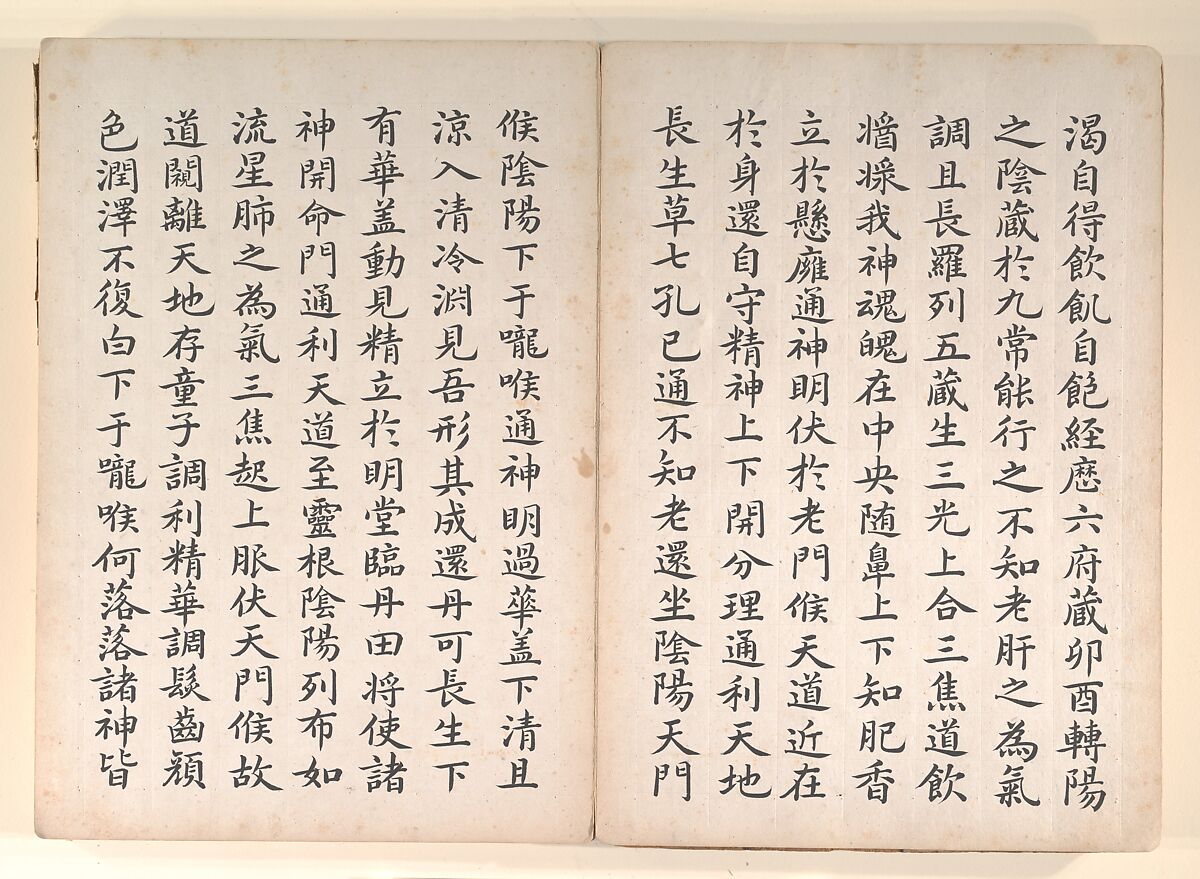 渴自得飲飢自飽経歷六府蔵卯酉轉陽
之陰蔵於九常能行之不知老肝之為氣
調且長羅列五蔵生三光上合三焦道飲
我神魂魄在中央随鼻上下知肥香
立於懸癕通神明伏於老門候天道近在
於身還自守精神上下開分理通利天地
長生草七孔已通不知老還坐陰陽天門
候陰陽下于嚨喉通神明過華盖下清且
涼入清冷渊見吾形其成還丹可長生下
有華盖動見精立於明堂臨丹田将使諸
神開命門通利天道至靈根陰陽列布如
流星肺之為氣三焦起上服伏天門候故
道闚離天地存童子調利精華調髮齒顔
色潤澤不復白下于嚨喉何落落諸神皆